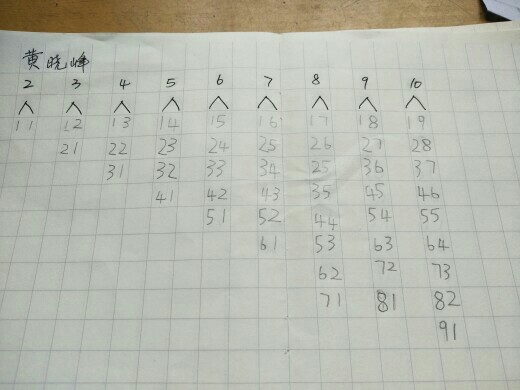 黄晓峰
2 3 4 5 6 7 8 9 10
11 12 13 14 15 16 17 18 19
21 22 23 24 25 26 27 28
31 32 33 34 25 36 37
41 42 43 35 45 46
51 52 44 54 55
61 53 63 64
62 72 73
71 81 82
91